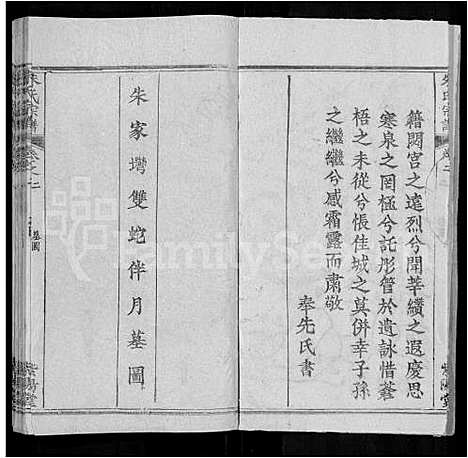 朱氏宗譜
卷之二
籍閟宮之遠烈兮開莘纘之遐慶思
寒泉之罔極兮託彤管於遺詠惜蒼
梧之未從兮悵佳城之莫併幸子孫
之繼繼兮感霜露而肅敬
奉先氏書
朱家壪雙蛇伴月墓圖
朱氏宗譜
卷之二
墓圖
紫陽堂
紫陽堂
FamilySe